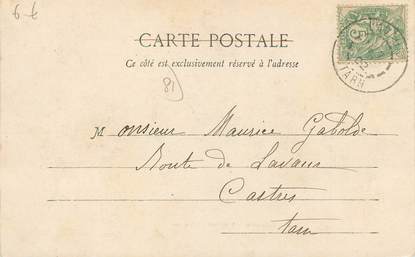 6-€
CARTE POSTALE
Ce côté est exclusivement réservé à l'adresse
81
TARN
Monsieur Maurice Gabolde
Route de Lavaur
Castres
Tarn